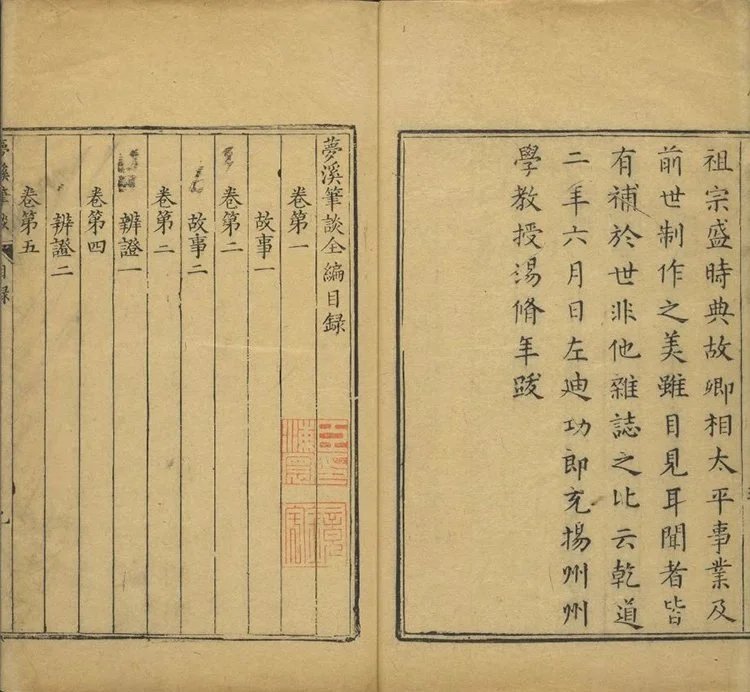 祖宗盛時典故卿相太平事業及
前世制作之美雖目見耳聞者皆
有補於世非他雜誌之比云乾道
二年六月日左迪功郎充揚州州
學教授湯脩年跋
夢溪筆談全編目録
卷第一
故事一
卷第二
故事二
卷第二
辨證一
卷第四
辨證二
卷第五
夢溪筆談
目録